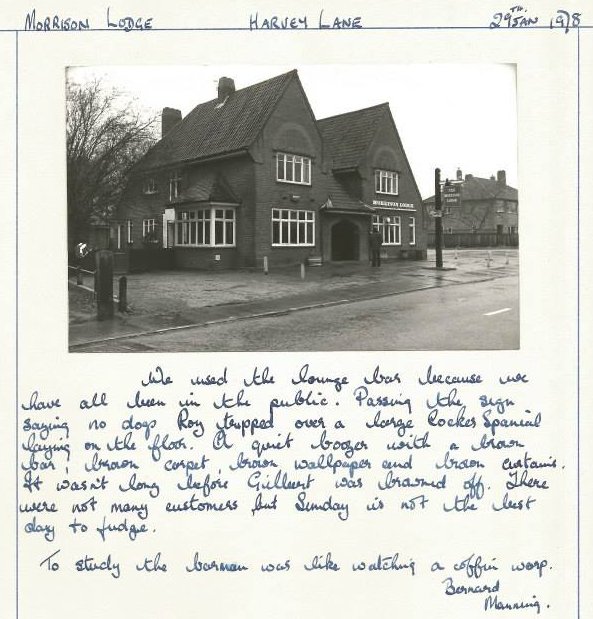 MORRISON LODGE HARVEY LANE 29TH JAN 1978
MORRISON LODGE
THE MORRISON LODGE
We used the lounge bar because we
have all been in the public. Passing the sign
saying no dogs Roy tripped over a large Cocker Spanial
laying on the floor. A quiet boozer with a brown
bar, brown carpet, brown wallpaper and brown curtains.
It wasn't long before Gilbert was browned off. There
were not many customers but Sunday is not the best
day to judge.
To study the barman was like watching a coffin warp.
Bernard
Manning.